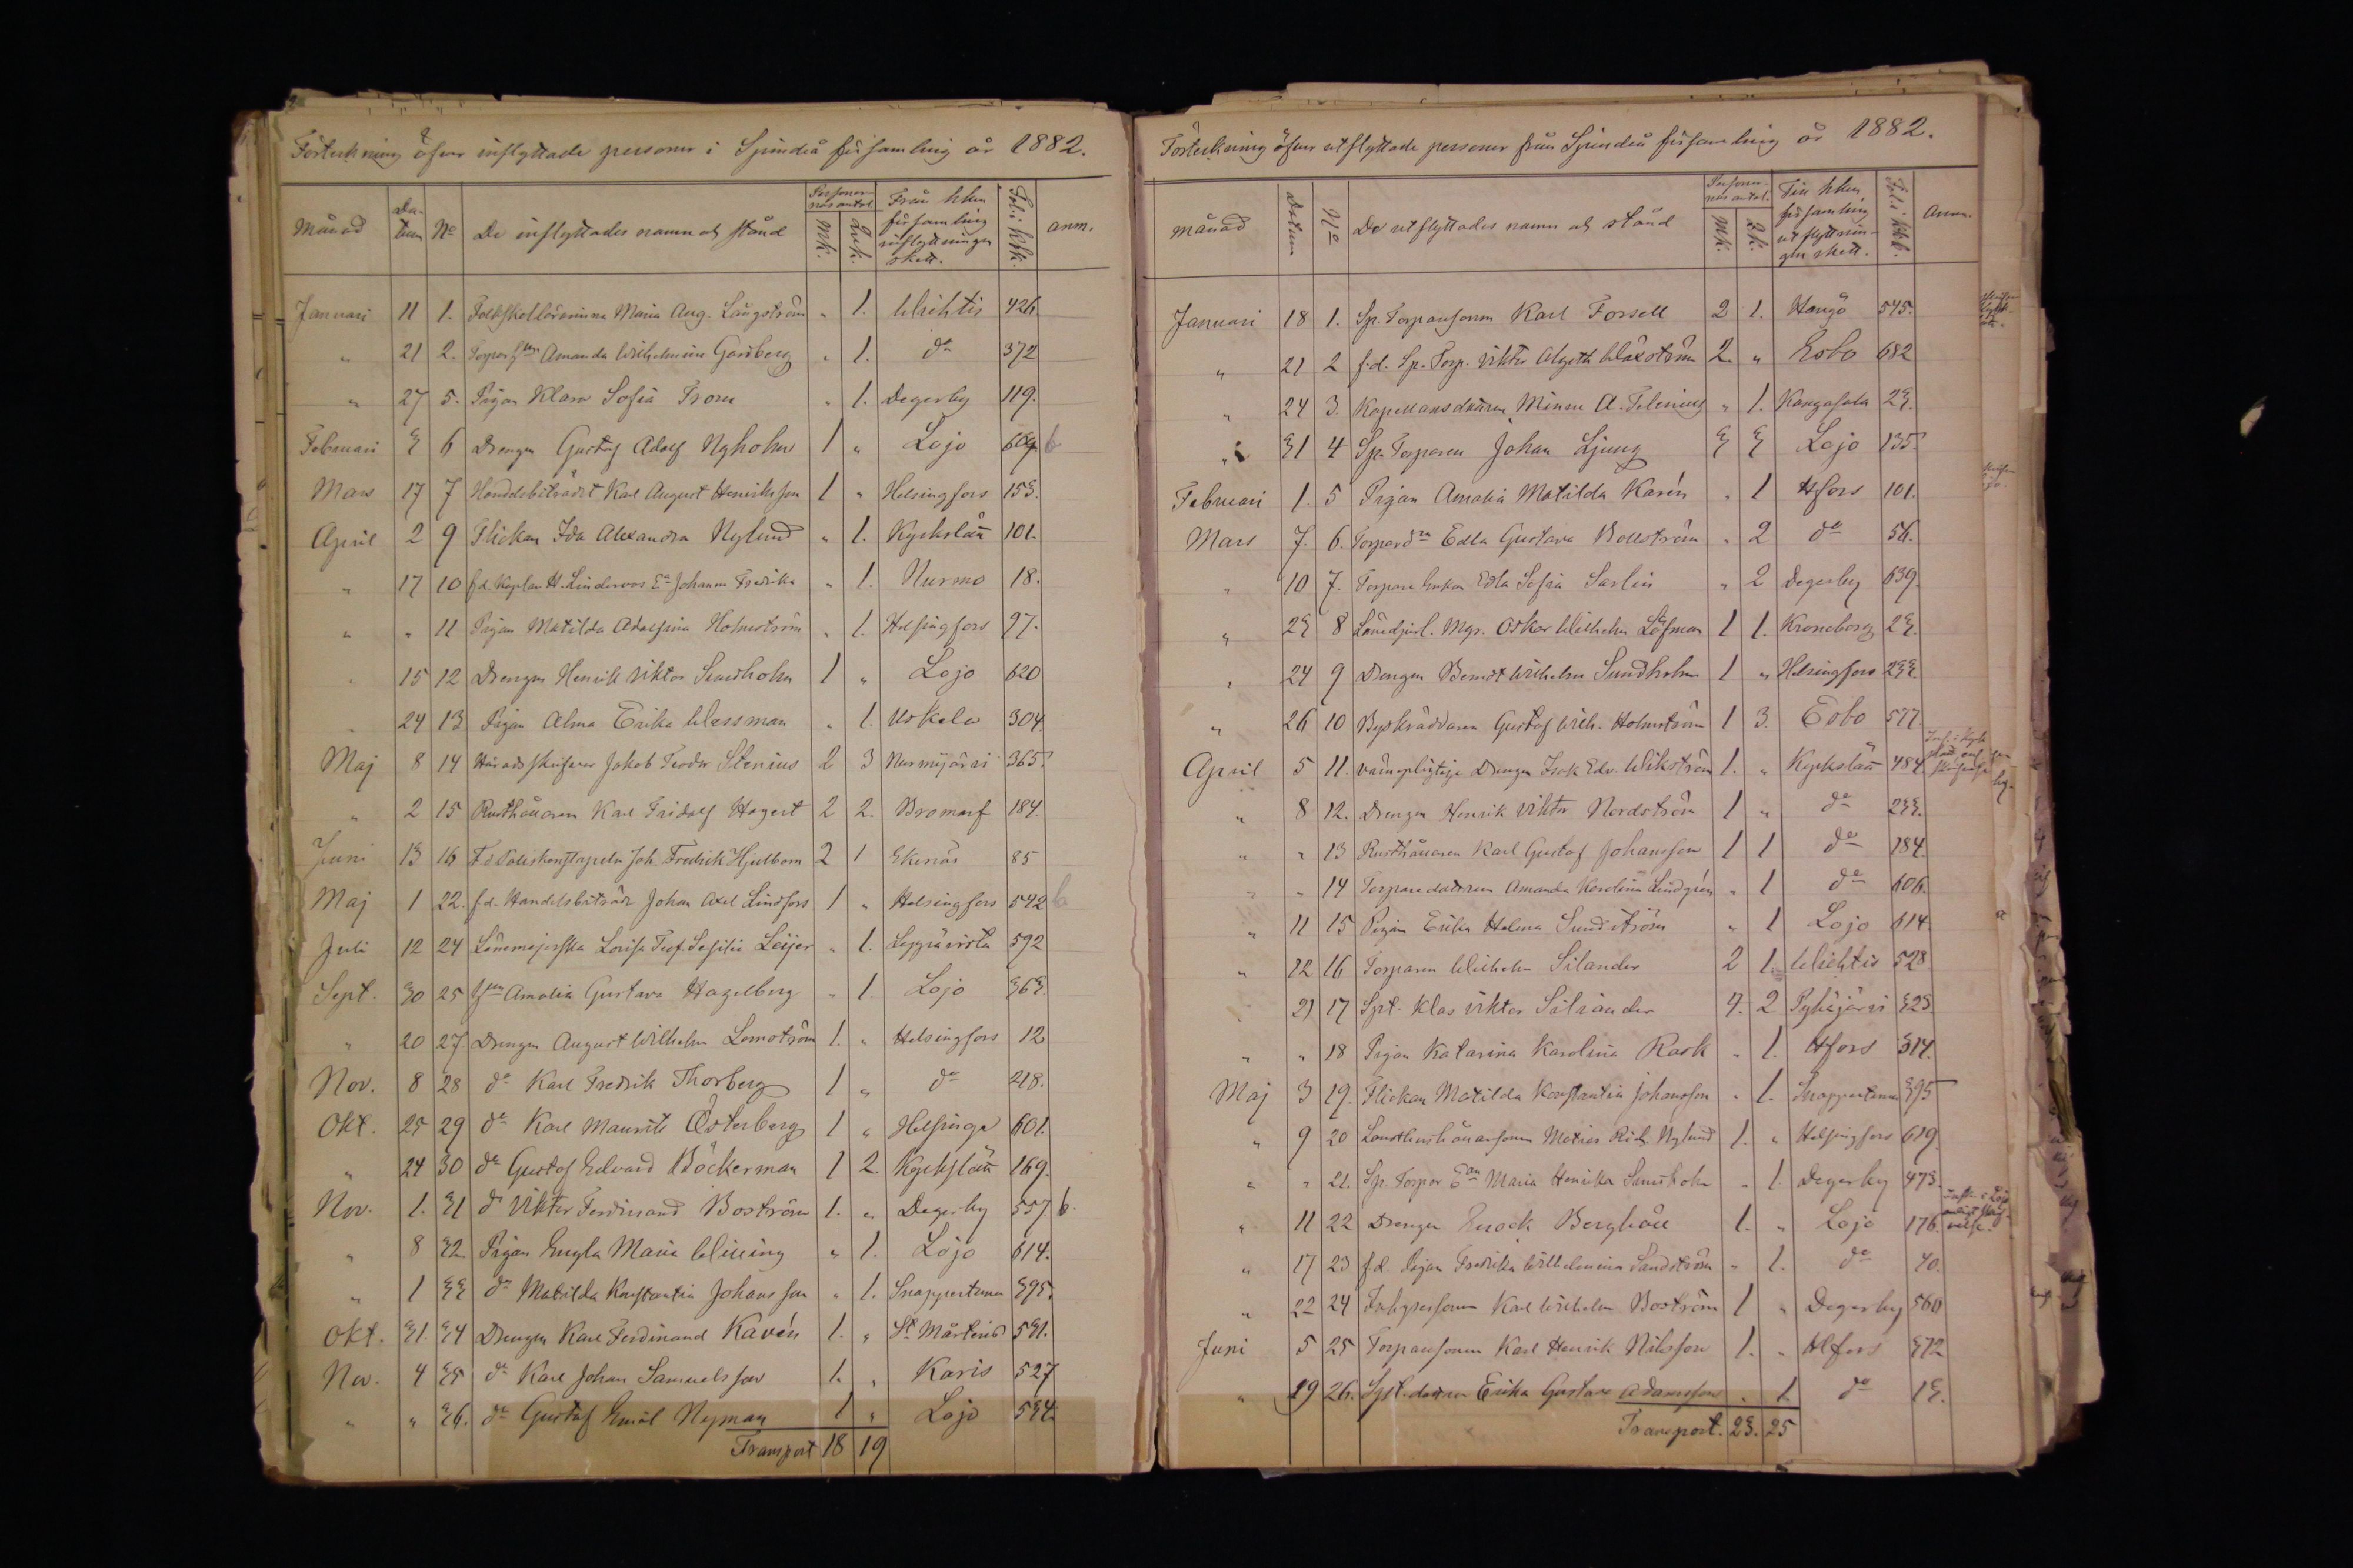 Förteckning öfver inflyttade personer i Sjundeå församling år 1882.
Månad Datum No De inflyttades namn och stånd Personernas antal Mk. Qvk. Från hvilken församling inflyttningen skett. Fol. i Kbk. anm.
Januari 11 1. Folkskollärarinna Maria Aug. Långström " 1. Wichtis 426
" 21 2. Amanda Wilhelmina Garsberg " 1. do 372
" 27 5. Pigan Klara Sofia Trom " 1. Degerby 119.
Februari 3 6 Drengen Gustaf Adolf Nyholm 1 " Lojo b
Mars 17 7 Handelsbiträdet Karl August Henriksson 1 " Helsingfors 153.
April 2 9 Flickan Ida Alexandra Nylund " 1. Kyrkslätt 101.
" 17 10 f.d. Kaplan H. Linderoos Ea Johanna Fredrika " 1. Nurmo 18.
" " 11 Pigan Matilda Adolfina Holmström " 1. Helsingfors 97.
" 15 12 Drengen Henrik Viktor Sundholm 1 " Lojo 620
" 24 13 Pigan Alma Erika Wessman " 1. Uskela 304.
Maj 8 14 Häradsskrifvaren Jakob Teodor Stenius 2 3 Nurmijärvi 365.
" 2 15 Rusthållaren Karl Fridolf Hagert 2 2. Bromarf 184.
Juni 13 16 F.d. Poliskonstapeln Joh. Fredrik Hjulbom 2 1 Ekenäs 85
Maj 1 22. f.d. Handelsbiträd. Johan Axel Lindfors 1 " Helsingfors 542 b
Juli 12 24 Länemajorska Lovisa Teof. Sesilia Leijer " 1. Leppävirta 592
Sept. 30 25 Amalia Gustava Hagelberg " 1. Lojo 363.
" 20 27. Drengen August Wilhelm Lomström 1. " Helsingfors 12
Nov. 8 28 do Karl Fredrik Thorberg 1 " do 218.
Okt. 25 29 do Karl Maurits Österberg 1 " Helsinge 601.
" 24 30 do Gustaf Edvard Böckerman 1 2. Kyrkslätt 169.
Nov. 1. 31 do Viktor Ferdinand Boström 1. " Degerby 557. b.
" 8 32 Pigan Engla Maria Willing " 1. Lojo 614.
" 1 33 do Matilda Konstantia Johansson " 1. Snappertuna 395.
Okt. 31. 34 Drengen Karl Ferdinand Kavén 1. " St Mårtens 531.
Nov. 4 35 do Karl Johan Samuelsson 1. " Karis 527
" " 36. do Gustaf Emil Nyman 1 " Lojo 534.
Transport 18 19
Förteckning öfver utflyttade personer från Sjundeå församling år 1882.
Månad Datum No De utflyttades namn och stånd Personernas antal. Mk. Qk. Till hvilken församling utflyttningen skett. Fol. i Kbk. Anm.
Januari 18 1. Sp. Torparsonen Karl Forsell 2 1. Hangö 545.
" 21 2 f.d. Sp. Torp. Viktor Alzeth Wäxström 2. " Esbo 682
" 24 3. Kapellansdottern Minna A. Telenius " 1. Kangasala 23.
" 31 4 Sp. Torparen Johan Ljung 3 3 Lojo 135.
Februari 1. 5 Pigan Amalia Matilda Karén " 1 Hfors 101.
Mars 7. 6. Torpardrn Edla Gustava Bollström " 2 do 56.
" 10 7. Torpare Enkan Edla Sofia Sarlin " 2 Degerby 639.
" 23 8 Länedjurl. Mgr. Oskar Wilhelm Löfman 1 1. Kroneborg 23.
" 24 9 Drengen Berndt Wilhelm Sundholm 1 " Helsingfors 233
" 26 10 Byskräddaren Gustaf Wilh. Holmström 1 3. Esbo 577.
April 5 11. värnepligtige Drengen Isak Edv. Wikström 1. " Kyrkslätt 484.
" 8 12. Drengen Henrik Viktor Nordström 1 " do 233.
" " 13 Rusthållaren Karl Gustaf Johansson 1 1 do 184.
" " 14 Torparedottern Amanda Karolina Lindgrén " 1 do 606.
" 11 15 Pigan Erika Helena Sundström " 1 Lojo 614.
" 12 16 Torparen Wilhelm Silander 2 1. Wichtis 528.
" 21 17 Spt. Klas Viktor Silvander 4. 2 Pyhäjärvi 325.
" " 18 Pigan Katarina Karolina Rask " 1. Hfors 314.
Maj 3 19. Flickan Matilda Konstantia Johansson " 1. Snappertuna 395
" 9 20 Lanthushållarsonen Matias Rich. Nylund 1. " Helsingfors 619.
" " 21. Sp. Torpar Ean Maria Henrika Sundholm " 1. Degerby 473.
" 11 22 Drengen Enock Berghäll 1. " Lojo 176.
" 17 23 f.d. Pigan Fredrika Wilhelmina Sandström " 1. do 40.
" 22 24 Inhysessonen Karl Wilhelm Boström 1 " Degerby 560
Juni 5 25 Torparsonen Karl Henrik Nilsson 1. " Hfors 372
" 19 26. Spt. dottern Erika Gustava Adamsson " 1. do 13.
Transport. 23. 25